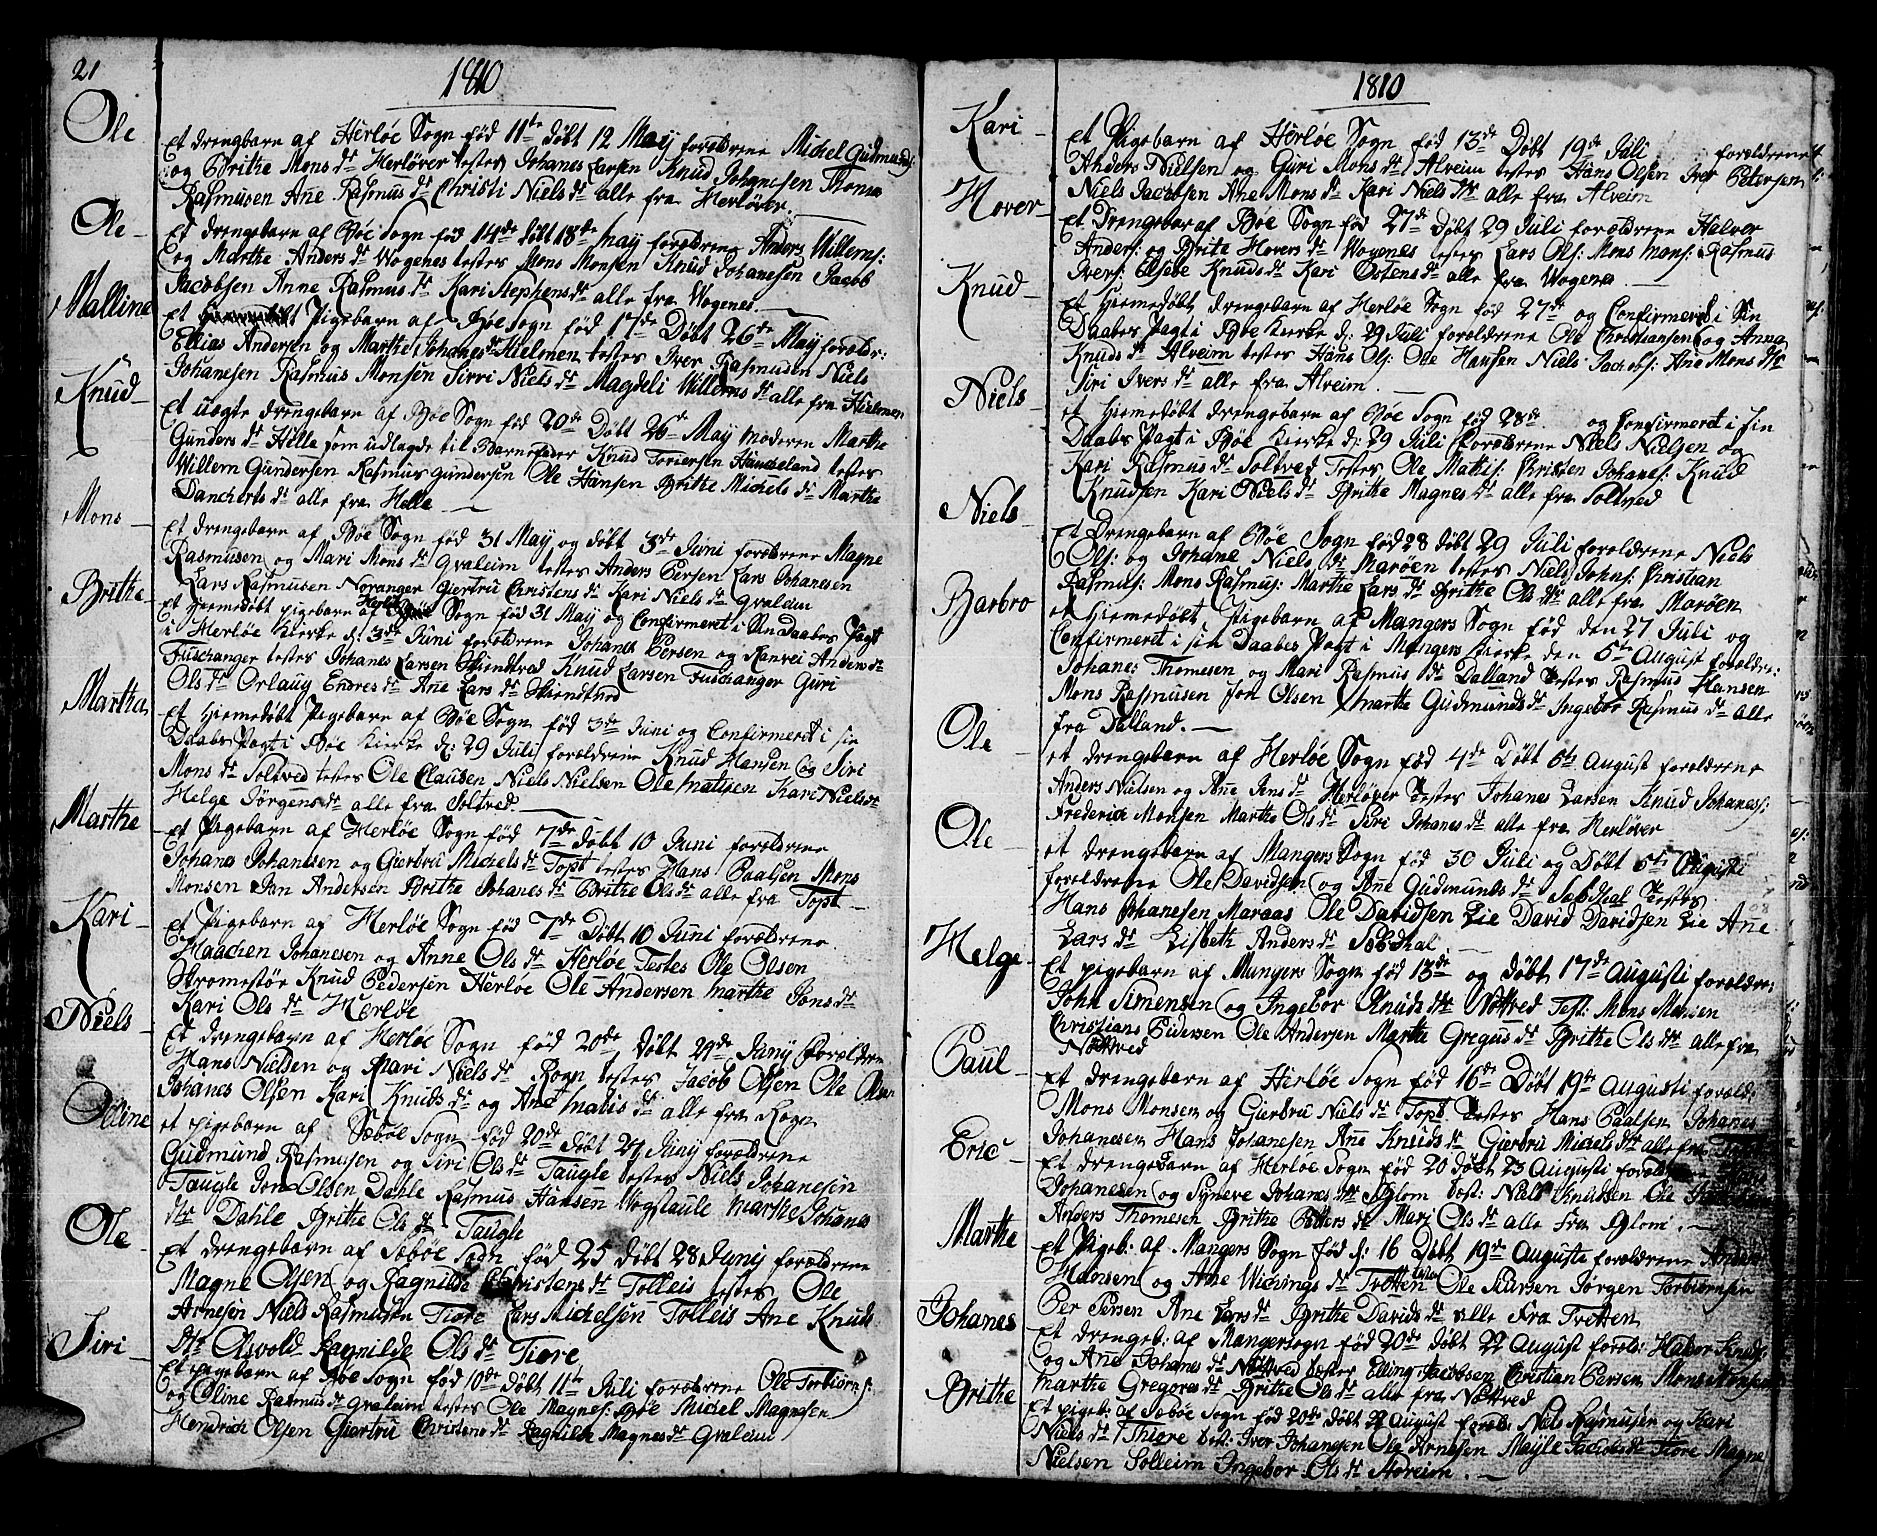 21
1810
Ole
Et drengebarn af Herløe Sogn fød 11te døbt 12 May forældrene Michel Gudmunds:
og Brithe Mons dr Herløver testes Johanes Larsen Knud Johanesen Thomas
Rasmusen Ane Rasmus dr Christi Niels dr alle fra Herløver
Ole
Et drengebarn af Bøe Sogn fød 14de døbt 18de May forældrene Anders Willems:
og Marthe Anders dr Wogenes testes Mons Monsen Knud Johanesen Jacob
Jacobsen Anne Rasmus dr Kari Stephens dr alle fra Wogenes
Malline
Et Pigebarn af Bøe Sogn fød 17de Døbt 26de May forældr:
Ellias Andersen og Marthe Johanes dr Hielmen testes Iver Rasmusen Niels
Johanesen Rasmus Monsen Sirri Niels dr Magdeli Willems dr alle fra Hielmen
Knud
Et uægte drengebarn af Bøe Sogn fød 20de Døbt 26de May moderen Marthe
Gunders dr Hille som udlagde til Barnefader Knud Toriersen Haucheland testes
Willem Gundersen Rasmus Gundersen Ole Hansen Brithe Michels dr Marthe
Dancherts dr alle fra Helle
Mons
Et drengebarn af Bøe Sogn fød 31 May og døbt 3de Juni forældrene Magne
Rasmusen og Mari Mons dr Qvaleim testes Anders Persen Lars Johanesen
Lars Rasmusen Noranger Giertru Christens dr Kari Niels dr Qvaleim
Brithe
Et hiemedøbt pigebarn af Herløe Sogn fød 31 May og Confirmeret i Sin Daabes Pagt
i Herløe Kierke d: 3de Juni forældrene Johanes Persen og Ranvei Anders dr
Fuschanger testes Johanes Larsen Skiendved Knud Larsen Fuschanger Guri
Ols dr Orlaug Endres dr Ane Lars dr Skiendved
Martha
Et hiemedøbt Pigebarn af Bøe Sogn fød 3de Juni og Confirmeret i sin
Daabes Pagt i Bøe Kierke d: 29 Juli forældrene Knud Hansen og Siri
Mons dr Soltved testes Ole Clausen Niels Nielsen Ole Matisen Kari Niels dr
Helge Jørgens dr alle fra Soltved
Marthe
Et Pigebarn af Herløe Sogn fød 7de døbt 10 Juni forældrene
Johanes Johanesen og Gierbru Michels dr Topt testes Hans Paalsen Mons
Monsen Jan Andersen Brithe Johanes dr Brithe Ols dr alle fra Topt
Kari
Et Pigebarn af Herløe Sogn fød 7de Døbt 10 Juni forældrene
Haachen Johanesen og Anne Ols dr Herløe Testes Ole Olsen
Skromestør Knud Pedersen Herløe Ole Andersen Marthe Jons dr
Kari Ols dr Herløe
Niels
Et drengebarn af Herløe Sogn fød 20de døbt 24de Junij Forældren
Hans Nielsen og Mari Niels dr Rogn testes Jacob Olsen Ole
Johanes Olsen Kari Knuds dr og Ane Matis dr alle fra Rogn
Olline
et pigebarn af Sæbøe Sogn fød 20de døbt 24 Junij forældrene
Gudmund Rasmusen og Siri Ols dr Taugle testes Niels Johanesen
Taugle Jon Olsen Dahle Rasmus Hansen Wogstaule Marthe Johanes
dr Dahle Brithe Ols dr Taugle
Ole
Et drengebarn af Sæbøe Sogn fød 25 døbt 28 Junij forældrene
Magne Olsen og Ragnilde Christens dr Tolleis testes Ole
Arnesen Niels Rasmusen Tiore Lars Michelsen Tolleis Ane Knuds
dr Oswold Ragnilde Ols dr Tiore
Siri
Et pigebarn af Bøe Sogn fød 10de døbt 11te Juli forældrene Ole Torbiørns:
og Oline Rasmus dr Qvaleim testes Ole Magnes: Bøe Michel Magnesen
Hendrich Olsen Giertru Christens dr Ragnilde Magnes dr Qvaleim
1810
Kari
Et Pigebarn af Herløe Sogn fød 13de Døbt 19de Juli forældrene
Anders Nielsen og Guri Mons dr Alveim testes Hans Olsen Iver Petersen
Niels Jacobsen Ane Mons dr Kari Niels dr alle fra Alveim
Hover
Et Drengebar af Bøe Sogn fød 27de Døbt 29 Juli forældrene Halver
Anders: og Brite Hovers dr Wogenes testes Lars Ols: Mons Mons: Rasmus
Ivers: Elsebe Knuds dr Kari Ostens dr alle fra Wogenes
Knud
Et Hiemedøbt drengebarn af Herløe Sogn fød 27de og Confirmered i Sin
Daabes Pagt i Bøe Kierke d: 29 Juli forældrene Ole Christiansen og Anna
Knuds dr Alveim testes Hans Ols: Ole Hansen Niels Jachobs: Ane Mons dr
Siri Ivers dr alle fra Alveim
Niels
et Hiemedøbt drengebarn af Bøe Sogn fød 28de og Confirmeret i sin
Daabes Pagt i Bøe Kierke d: 29 Juli forældrene Niels Nielsen og
Kari Rasmus dr Soltved Testes Ole Matis: Christen Johanes: Knud
Knudsen Kari Niels dr Brithe Magnes dr alle fra Soltved
Niels
Et Drengebarn af Bøe Sogn fød 28 døbt 29 Juli forældrene Niels
Ols: og Johane Niels dr Marøen testes Niels Johns: Christian
Rasmus: Mons Rasmus: Marthe Lars dr Brithe Ols dr alle fra Marøen
Barbro
et Hiemedøbt Pigebarn af Mangers Sogn fød den 27 Juli og
Confirmeret i sin Daabes Pagt i Mangers Kierke den 5te August foreldre:
Johanes Thomesen og Mari Rasmus dr Dalland testes Rasmus Hansen
Mons Rasmusen Jon Olsen Marthe Gudmunds dr Ingebor Rasmus dr alle
fra Dalland.
Ole
et drengebarn af Herløe Sogn fød 4de Døbt 6te August forældrene
Anders Nielsen og Ane Jens dr Herløver Testes Johanes Larsen Knud Johaness:
Frederich Monsen Marthe Ols dr Siri Johanes dr alle fra Herløver
Ole
et drengebarn af Mangers Sogn fød 30 Juli og Døbt 5te Augusti
forældrene Ole Davidsen og Ane Gudmunds dr Testes
Hans Johanesen Maraas Ole Davidsen Lie David Davidsen Lie Ane
Lars dr Lisbeth Anders dr
Helge
Et pigebarn af Mangers Sogn fød 13de og døbt 17de Augusti forældre:
John Simensen og Ingebor Knuds dr Nøttved Test: Mons Monsen
Christians Pedersen Ole Andersen Marthe Gregus dr Brithe Ols dr alle fra
Nøttved
Paul
Et drengebarn af Herløe Sogn fød 16de Døbt 19de Augusti foræld:
Mons Monsen og Gierbru Niels dr Topt Testes Hans Paalsen Johanes
Johanesen Hans Johanesen Ane Knuds dr Gierbru Michels dr alle fra Topt
Eric
Et drengebarn af Herløe Sogn fød 20 døbt 23 Augusti forældrene
Johanesen og Syneve Johanes dr Blom test: Niels Knudsen Ole
Anders Thomesen Brithe Peters dr Mari Ols dr alle fra Blom.
Marthe
Et Pigeb: af Mangers Sogn fød d: 16 Døbt 19de Auguste forældrene Anders
Hansen og Ane Wichings dr Trætten testes Ole Siursen Jørgen Torbiørnsen
Per Persen Ane Lars dr Brithe Davids dr alle Fra Trætten
Johanes
Et drengeb: af Mangersogn fød 20de døbt 22 August foræld: Halvor Knuds:
og Ane Johanes dr Nøttved testes Elling Jacobsen Christian Persen Mons Monsen
Marthe Gregores dr Brithe Ols dr alle fra Nøttved
Brithe
Et pigeb: af Sæbøe Sogn fød 20de døbt 22 August foræld: Niels Rasmusen og Kari
Niels dr Thiore test: Iver Johanesen Ole Arnesen Mayle Jacobs dr Tiore Magne
Nielsen Solleim Ingebor Ols dr Storeim.